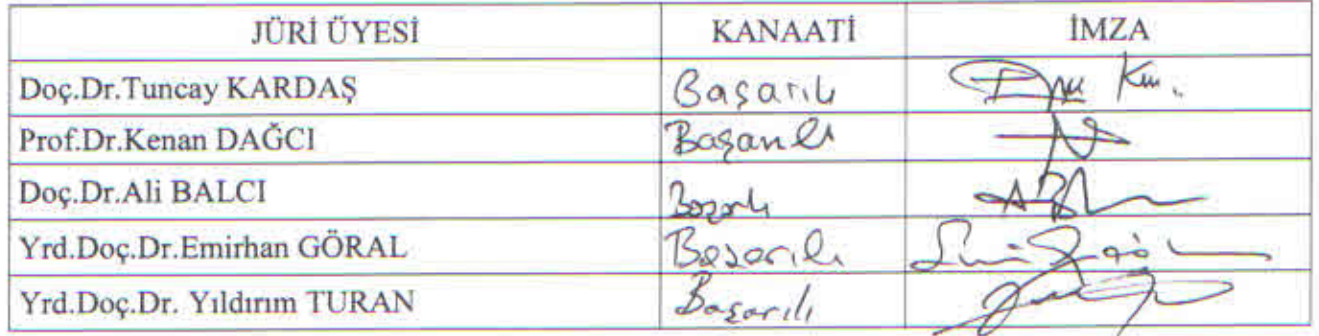 JÜRİ ÜYESİ KANAATİ İMZA
Doç.Dr.Tuncay KARDAŞ Başarılı
Prof.Dr.Kenan DAĞCI Başarılı
Doç.Dr.Ali BALCI Başarılı
Yrd.Doç.Dr.Emirhan GÖRAL Başarılı
Yrd.Doç.Dr. Yıldırım TURAN Başarılı